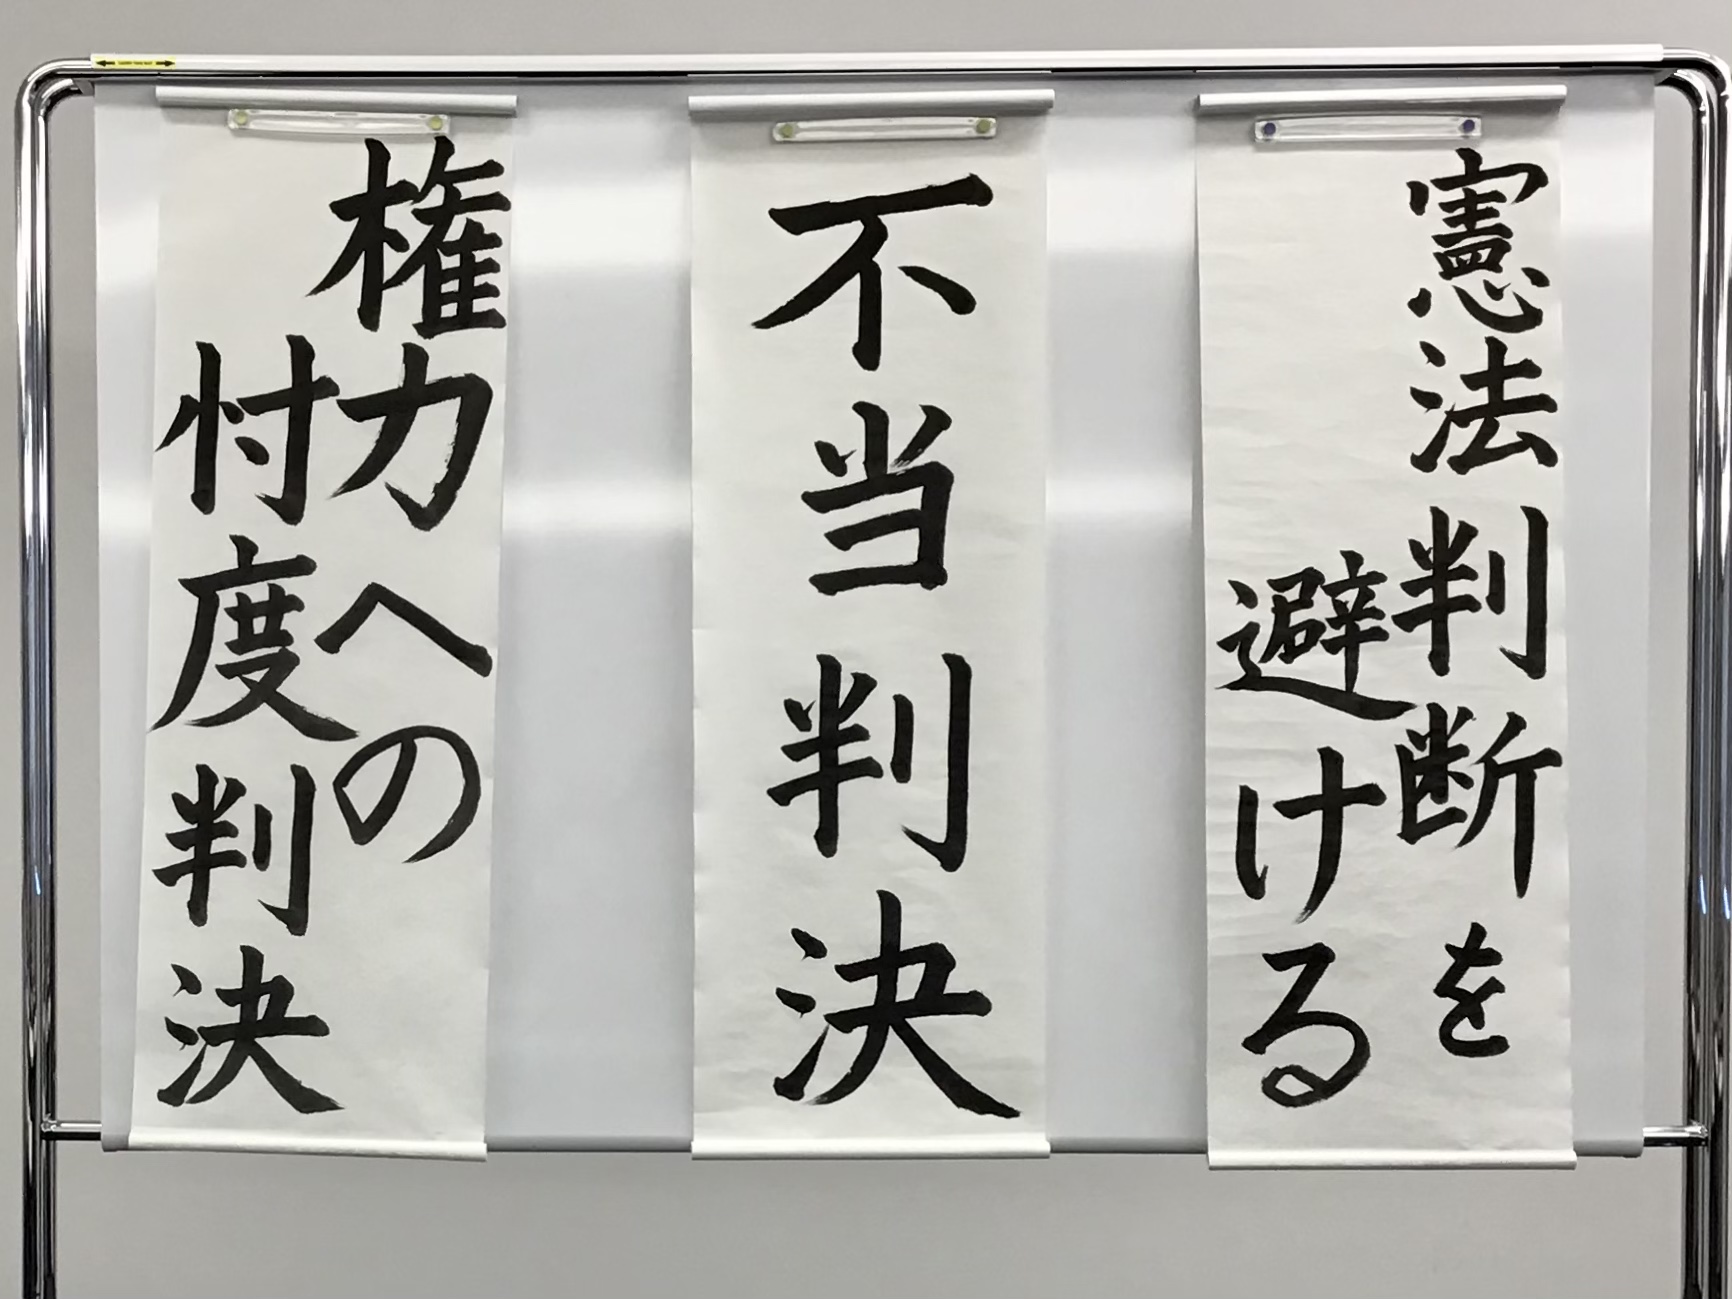 憲法判断を
避ける
不当判決
権力への
忖度判決